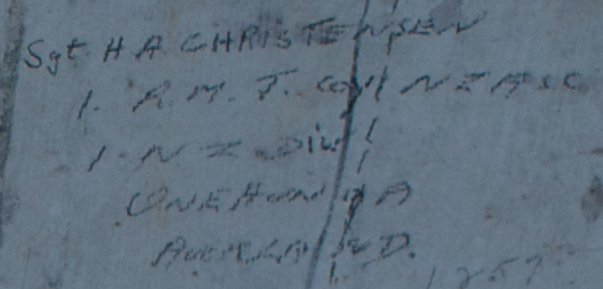 Sgt H A CHRISTENSEN
1. R.M.T. COY NZASC
1. NZ DIV
ONEHUNGA
AUCKLAND.